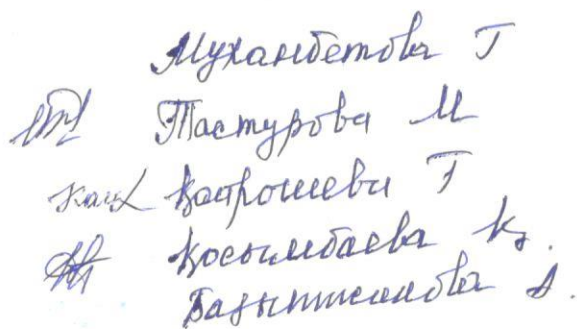 Муханбетова Г
Тастурова М
Қатрошева Г
Қосымбаева Қ.
Базылжанова А.